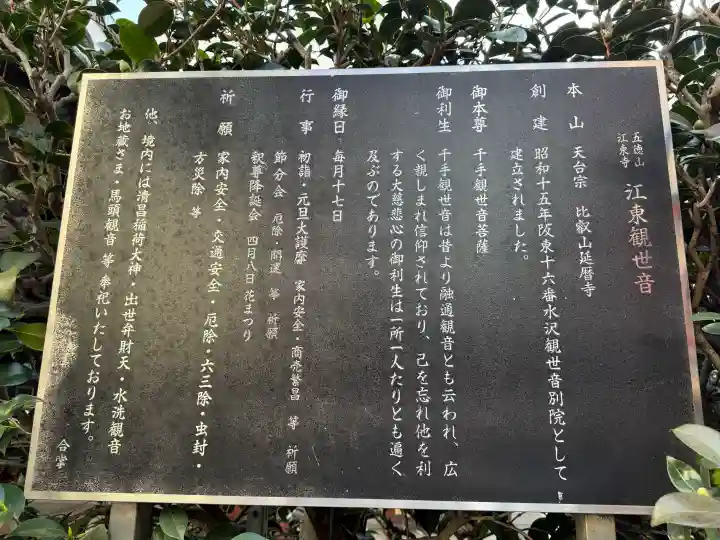 五徳山
江東寺
江東観世音
本山 天台宗 比叡山延暦寺
創建 昭和十五年阪東十六番水沢観世音別院として
建立されました。
御本尊 千手観世音菩薩
御利生 千手観世音は昔より融通観音とも云われ、広
く親しまれ信仰されており、己を忘れ他を利
する大慈悲心の御利生は一所一人たりとも遍く
及ぶのであります。
御縁日 毎月十七日
行事 初詣・元旦大護摩 家内安全・商売繁昌 等 祈願
節分会 厄除・開運 等 祈願
釈尊降誕会 四月八日 花まつり
祈願 家内安全・交通安全・厄除・六三除・虫封・
方災除 等
他、境内には清昌稲荷大神・出世弁財天・水洗観音
お地蔵さま・馬頭観音 等 奉祀いたしております。
合掌